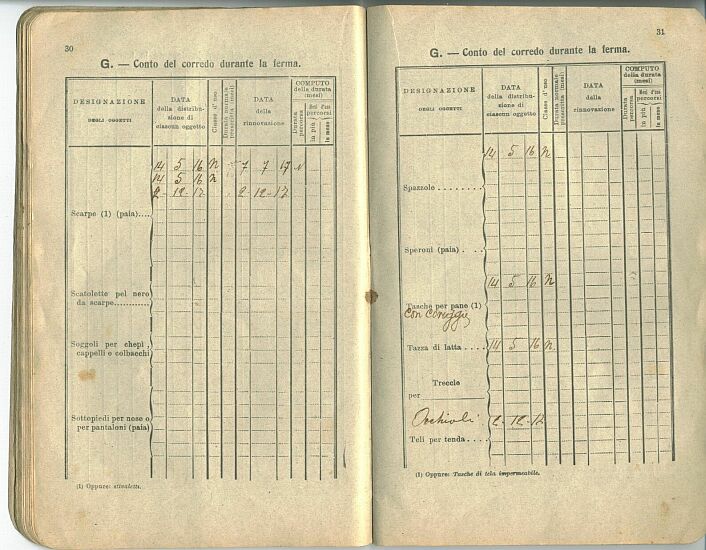 30
G. — Conto del corredo durante la ferma.
DESIGNAZIONE
DEGLI OGGETTI
DATA
della distribu-
zione di
ciascun oggetto
Classe d'uso
Durata normale
prescritta (mesi)
DATA
della
rinnovazione
COMPUTO
della durata
(mesi)
Durata
percorsa
Mesi d'uso
percorsi
in più
in meno
14 5 16 N 7 7 17 N
14 5 16 N
2-12-17 2-12-17
Scarpe (1) (paia)....
Scatolette pel nero
da scarpe...........
Soggoli per chepì,
cappelli o colbacchi
Sottopiedi per uose o
per pantaloni (paia)
(1) Oppure: stivaletti.
31
G. — Conto del corredo durante la ferma.
DESIGNAZIONE
DEGLI OGGETTI
DATA
della distribu-
zione di
ciascun oggetto
Classe d'uso
Durata normale
prescritta (mesi)
DATA
della
rinnovazione
COMPUTO
della durata
(mesi)
Durata
percorsa
Mesi d'uso
percorsi
in più
in meno
14 5 16 N
Spazzole ........
Speroni (paia) . . .
14 5 16 N
Tasche per pane (1)
con coreggie
Tazza di latta .... 14 5 16 N.
Treccie
per
Occhiali 2-12-17
Teli per tenda ....
(1) Oppure: Tasche di tela impermeabile.